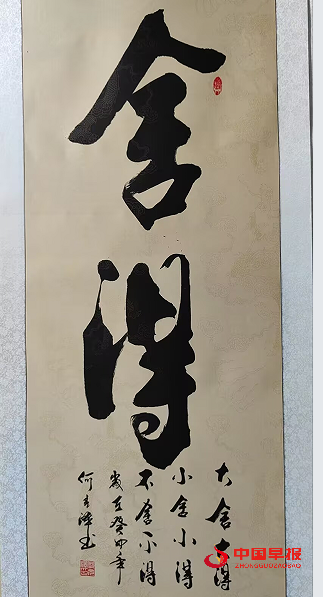 舍得
大舍大得
小舍小得
不舍不得
岁在癸卯年
中国早报
ZHONGGUOZAOBAO